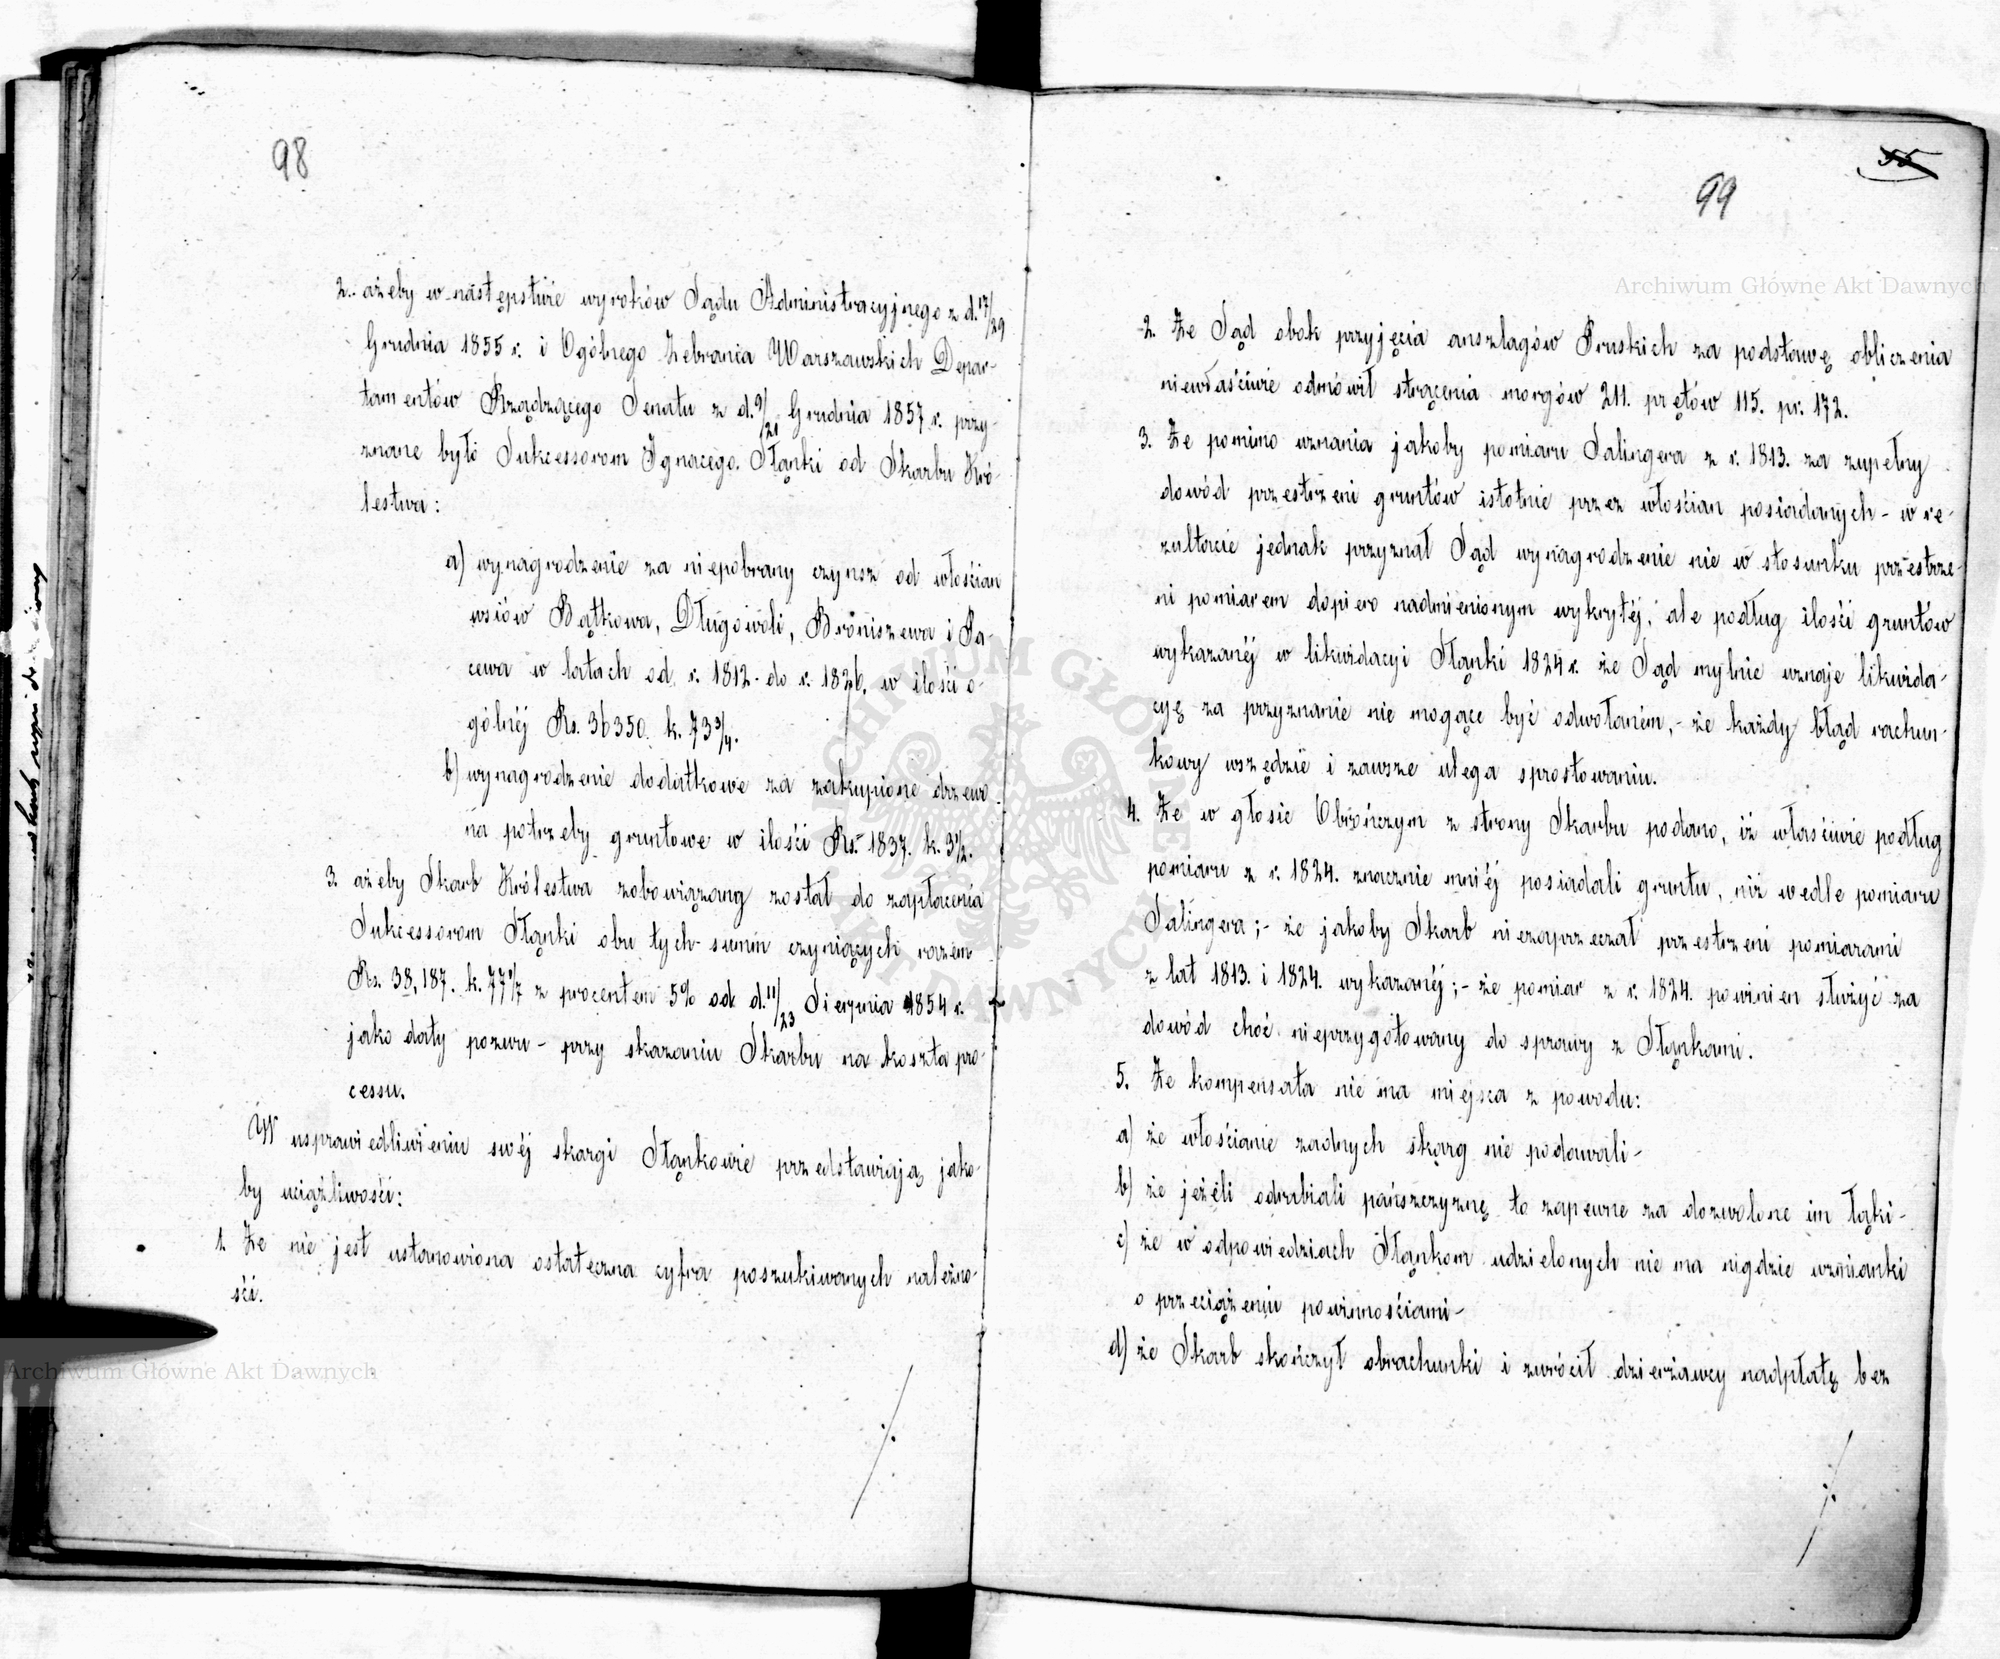 98
2. ażeby w następstwie wyroków Sądu Administracyjnego z d. 17/29
Grudnia 1855 r. i Ogólnego Zebrania Warszawskich Depar-
tamentów Rządzącego Senatu z d. 9/21 Grudnia 1857 r. przy-
znane było Sukcessorom Ignacego Stanki od Skarbu Kró-
lestwa:
a) wynagrodzenie za niepobrany czynsz od włościan
wsiów Bątkowa, Długowoli, Broniszewa i Pa-
cewa w latach od r. 1812. do r. 1826. w ilości o-
gólnéj Rs. 36350. k. 73 3/4.
b) wynagrodzenie dodatkowe za zakupione drzewo
na potrzeby gruntowe w ilości Rs. 1837. k. 3 1/2.
3. ażeby Skarb Królestwa zobowiązany został do zapłacenia
Sukcessorom Stąnki obu tych summ czyniących razem
Rs. 38,187. k. 77 z procentem 5% od d. 11/23 Sierpnia 1854 r.
jako daty pozwu – przy skazaniu Skarbu na koszta pro-
cessu.
W usprawiedliwieniu swéj skargi Stąnkowie przedstawiają jako-
by uciążliwości:
1. Że nie jest ustanowiona ostateczna cyfra poszukiwanych należno-
ści.
99
55
2. Że Sąd obok przyjęcia anszlagów Pruskich za podstawę obliczenia
niewłaściwie odmówił strącenia morgów 211. prętów 115. pr. 172.
3. Że pomimo uznania jakoby pomiaru Salingera z r. 1813. za zupełny
dowód przestrzeni gruntów istotnie przez włościan posiadanych – w re-
zultacie jednak przyznał Sąd wynagrodzenie nie w stosunku przestrze-
ni pomiarem dopiero nadmienionym wykrytéj, ale podług ilości gruntów
wykazanéj w likwidacyi Stąnki 1824 r. że Sąd mylnie uznaje likwida-
cyę za przyznanie nie mogące być odwołaném, – że każdy błąd rachun-
kowy wszędzie i zawsze ulega sprostowaniu.
4. Że w głosie Obrończym z strony Skarbu podano, iż właściwie podług
pomiaru z r. 1824. znacznie mniéj posiadali gruntu, niż wedle pomiaru
Salingera; – że jakoby Skarb niezaprzeczał przestrzeni pomiarami
z lat 1813. i 1824. wykazanéj; – że pomiar z r. 1824. powinien służyć za
dowód choć nieprzygotowany do sprawy z Stąnkami.
5. Że kompensata nie ma miejsca z powodu:
a) że włościanie żadnych skarg nie podawali –
b) że jeżeli odrabiali pańszczyznę to zapewne za dozwolone im łąki –
c) że w odpowiedziach Stąnkom udzielonych nie ma nigdzie wzmianki
o przeciążeniu powinnościami –
d) że Skarb skończył obrachunki i zwrócił dzierżawcy nadpłatę bez
Archiwum Główne Akt Dawnych
Archiwum Główne Akt Dawnych
ARCHIWUM GŁÓWNE AKT DAWNYCH